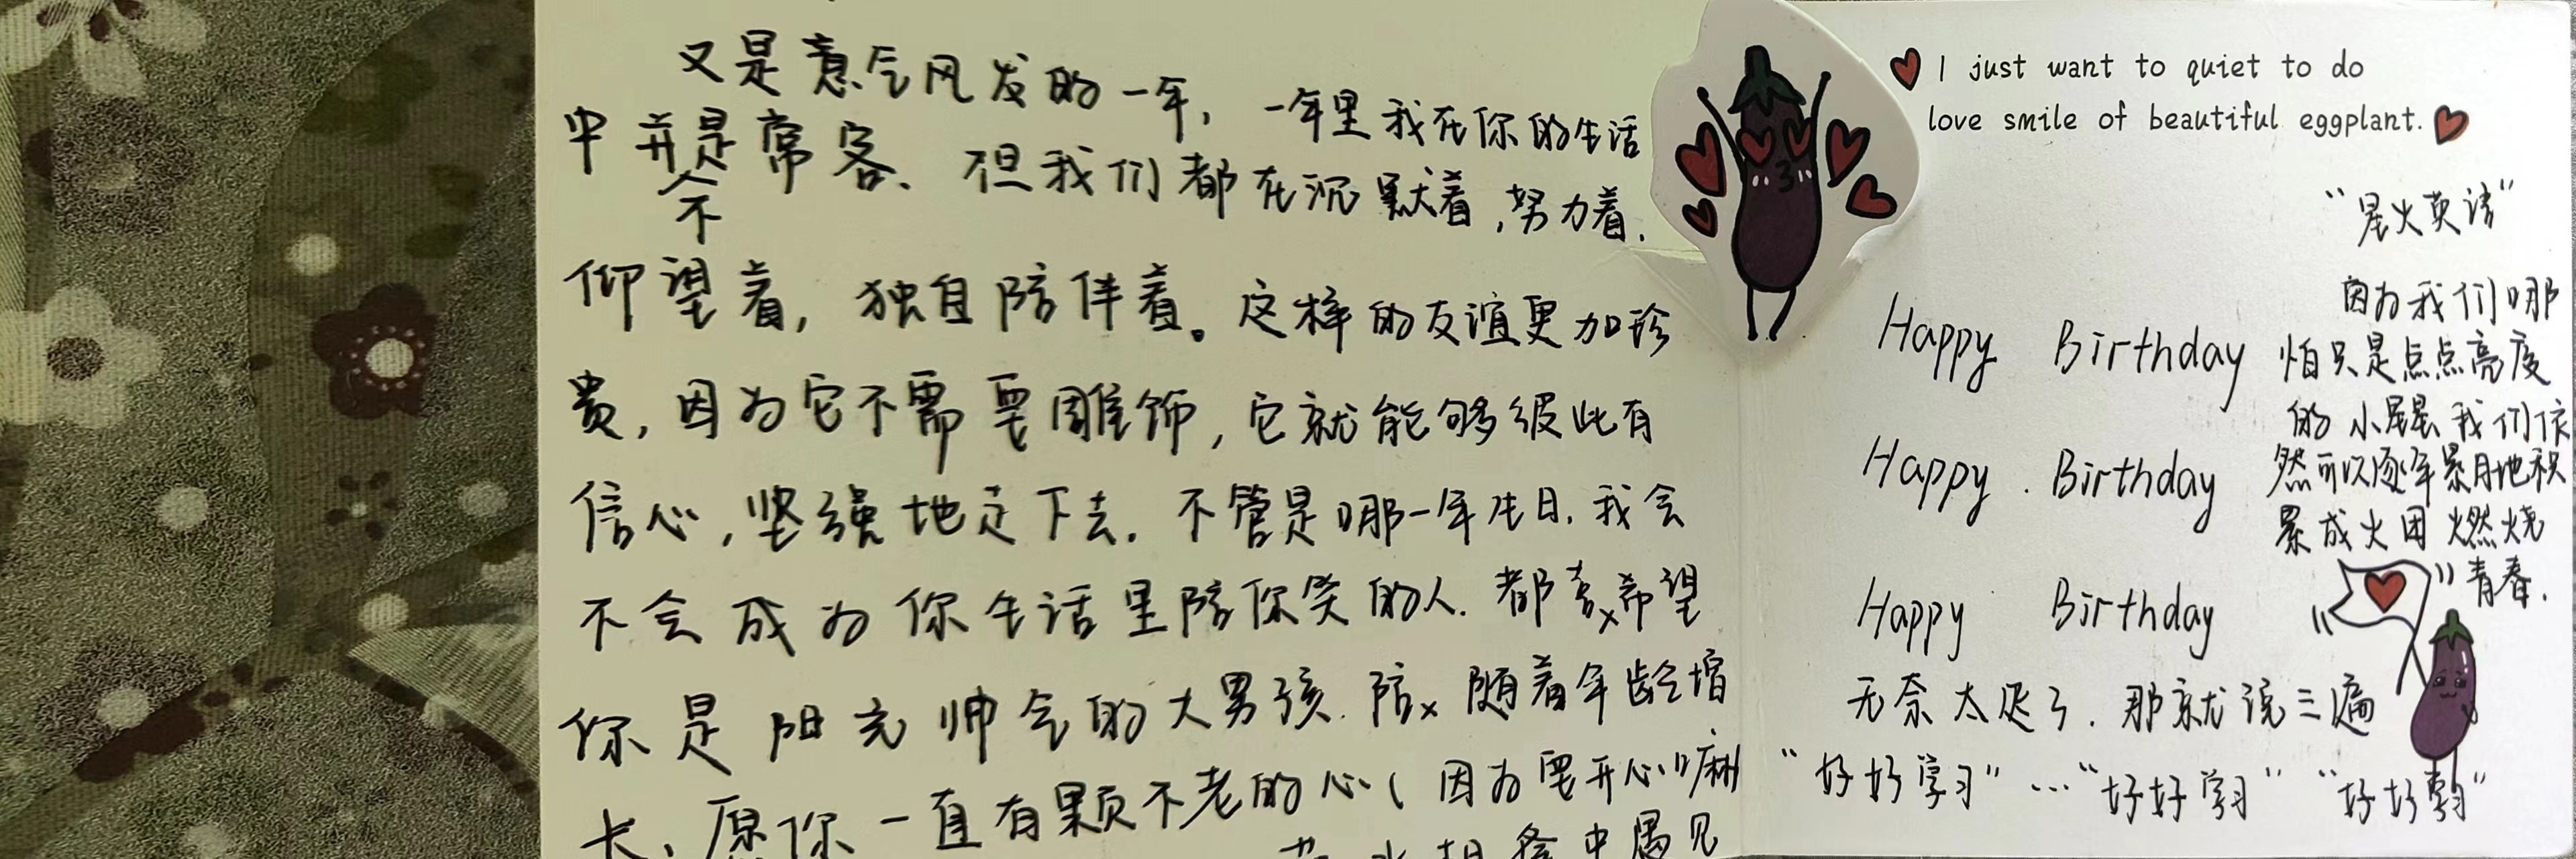 又是意气风发的一年，一年里我在你的生活
中并不是常客、但我们都在沉默着，努力着.
仰望着，独自陪伴着。这样的友谊更加珍
贵，因为它不需要雕饰，它就能够彼此有
信心，坚强地走下去. 不管是哪一年生日, 我会
不会成为你生活里陪你笑的人. 都希望
你是阳光帅气的大男孩. 随着年龄增
长，愿你一直有颗不老的心（因为要开心嘛
中遇见
I just want to quiet to do
love smile of beautiful eggplant.
"星火英语"
因为我们哪
怕只是点点亮度
的小星星我们依
然可以逐年累月地积
累成火团燃烧
青春.
Happy Birthday
Happy Birthday
Happy Birthday
无奈太迟了. 那就说三遍
"好好学习"…"好好学习" "好好学习"